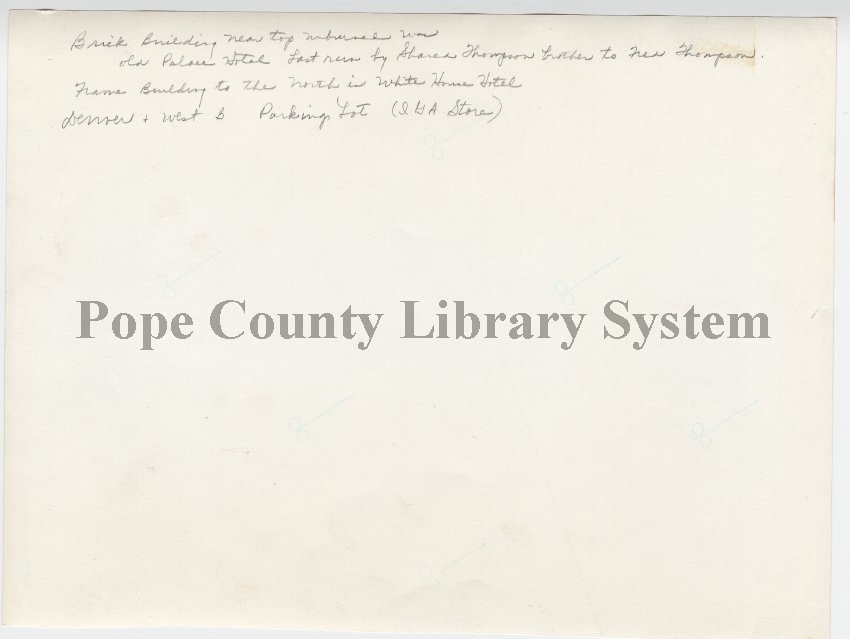 Brick Building near top
old Palace Hotel Last run by Thompson brother to Thompson.
Frame Building to the North is White House Hotel
Denver & West B Parking Lot (IGA Store)
Pope County Library System